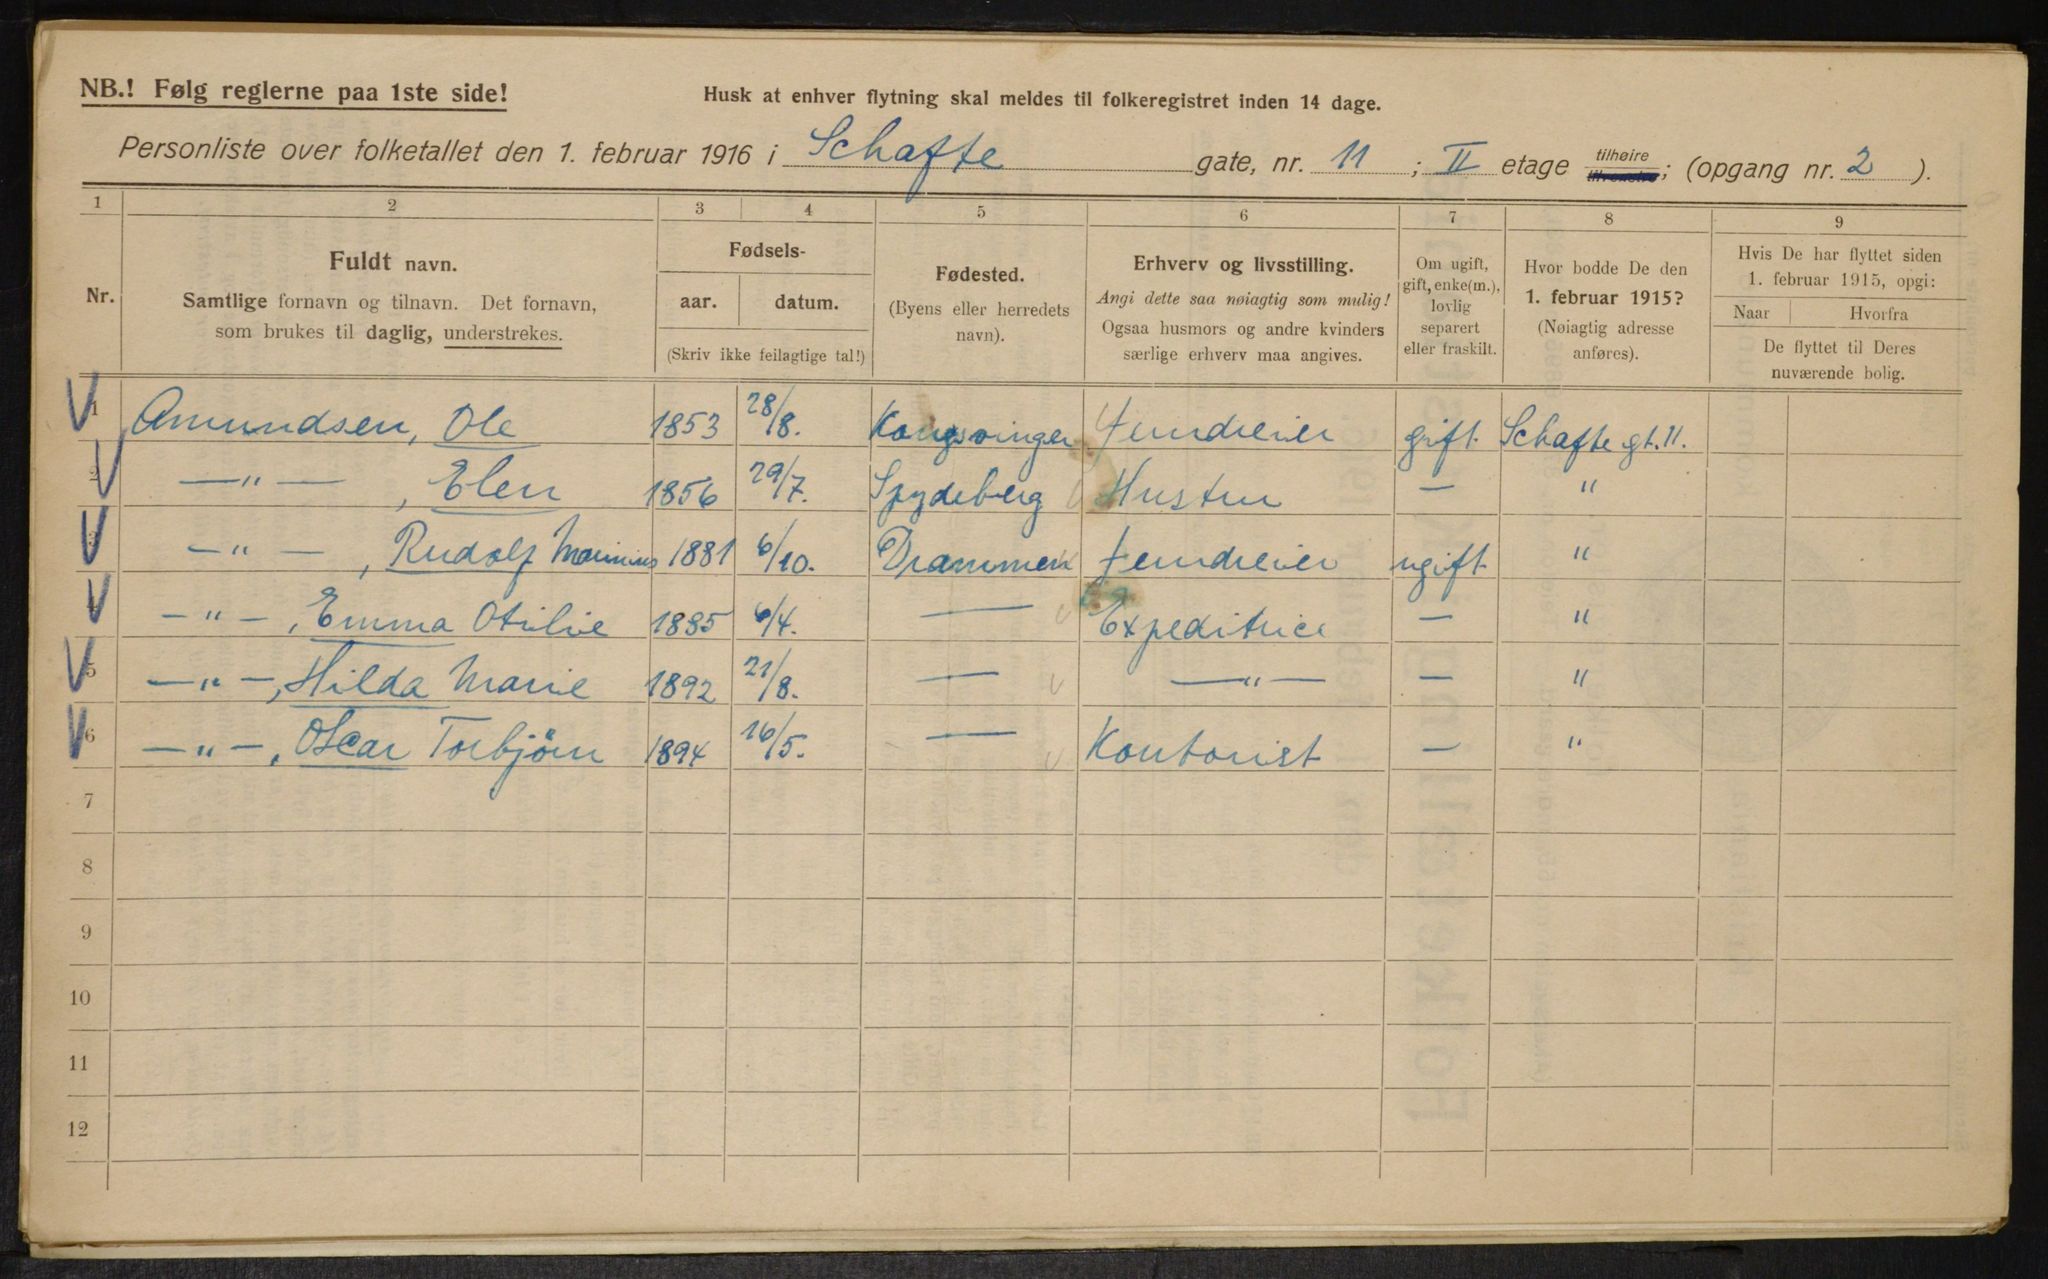 NB.! Følg reglerne paa 1ste side!
Husk at enhver flytning skal meldes til folkeregistret inden 14 dage.
Personliste over folketallet den 1. februar 1916 i Schafte gate, nr. 11 ; II etage tilhøire tilvenstre; (opgang nr. 2 ).
1 2 3 4 5 6 7 8 9
Nr.
Fuldt navn.
Samtlige fornavn og tilnavn. Det fornavn,
som brukes til daglig, understrekes.
Fødsels-
aar. datum.
(Skriv ikke feilagtige tal!)
Fødested.
(Byens eller herredets
navn).
Erhverv og livsstilling.
Angi dette saa nøiagtig som mulig!
Ogsaa husmors og andre kvinders
særlige erhverv maa angives.
Om ugift,
gift, enke(m.),
lovlig
separert
eller fraskilt.
Hvor bodde De den
1. februar 1915?
(Nøiagtig adresse
anføres).
Hvis De har flyttet siden
1. februar 1915, opgi:
Naar Hvorfra
De flyttet til Deres
nuværende bolig.
1 Amundsen, Ole 1853 28/8. Kongsvinger gift Schafte gt. 11.
2 —"— , Elen 1856 29/7. Spydeberg Hustru — "
3 —"— , Rudolf Marinius 1881 6/10. Drammen ugift "
4 —"— , Emma Otilie 1885 6/4. — Expeditrice — "
5 —"— , Hilda Marie 1892 21/8. — —"— — "
6 —"— , Oscar Torbjörn 1894 16/5. — Kontorist — "
7
8
9
10
11
12